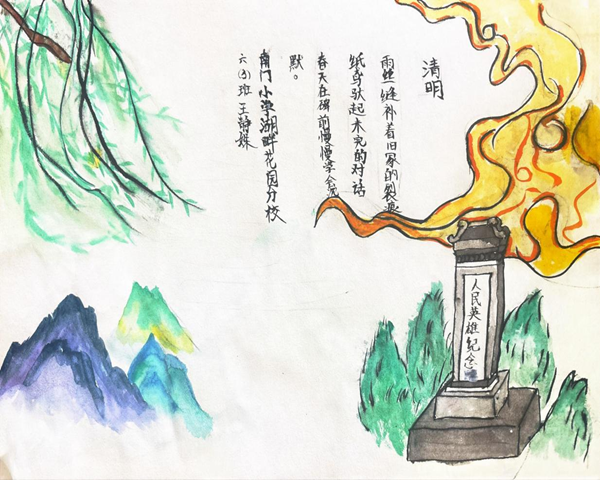 清明
雨丝缝补着旧冢的裂痕
纸鸢驮起未完的对话
春天在碑前慢慢学会沉
默。
南门小学湖畔花园分校
六(3)班王静姝
人民英雄纪念